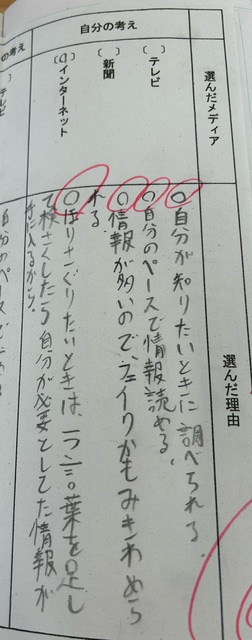 選んだメディア
選んだ理由
自分の考え
( )テレビ
( )新聞
(○)インターネット
○自分が知りたいときに調べられる。
○自分のペースで情報読める。
○情報が多いので、フェイクかもみきわめら
れる。
○ほりさぐりたいときは一つ言葉を足し
て検さくしたら自分が必要としてた情報が
手に入るから。
の考え
( )テレビ
自分のペースで